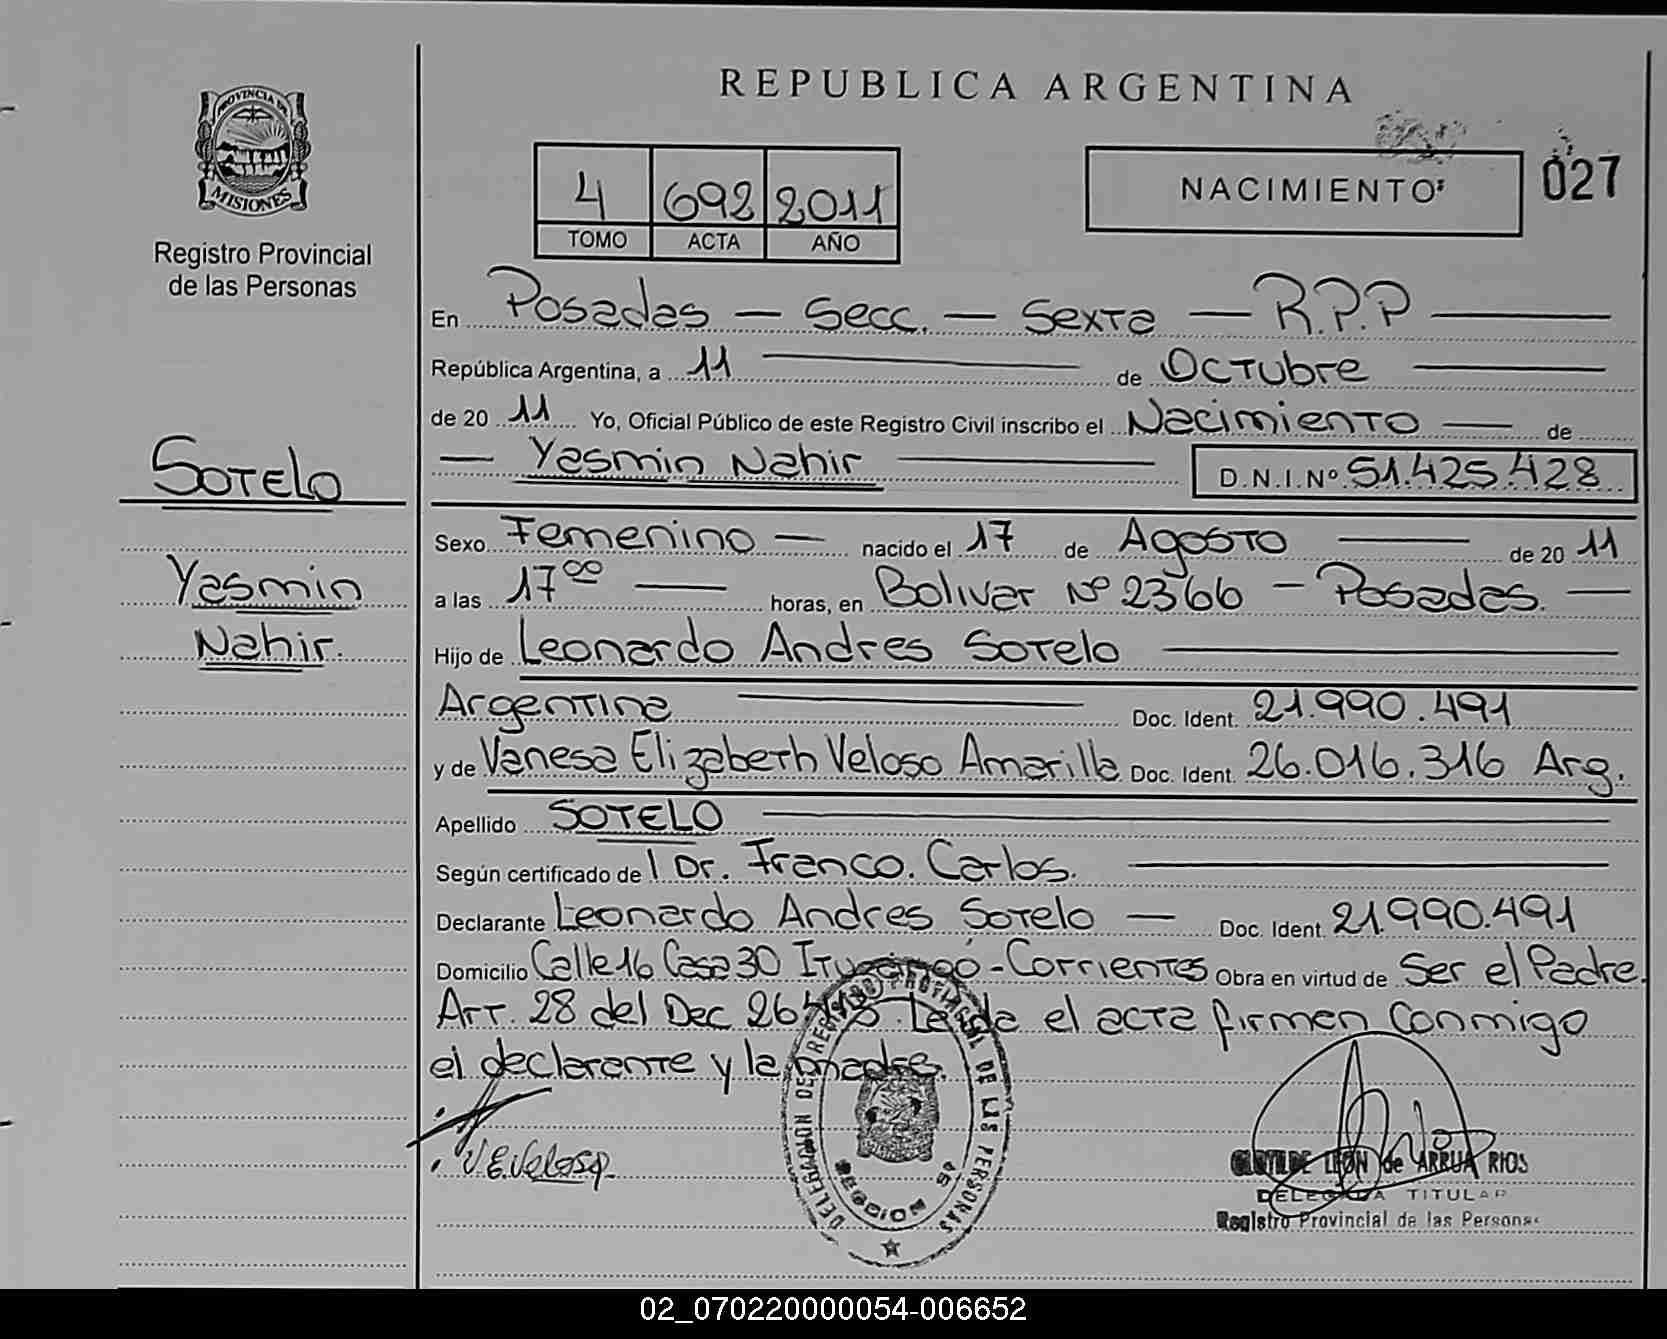 PROVINCIA DE
MISIONES
Registro Provincial
de las Personas
SOTELO
Yasmin
Nahir.
REPUBLICA ARGENTINA
4 692 2011
TOMO ACTA AÑO
NACIMIENTO
027
En Posadas — Secc. — Sexta — R.P.P —
República Argentina, a 11 — de Octubre —
de 20 11 Yo, Oficial Público de este Registro Civil inscribo el Nacimiento — de
— Yasmin Nahir — D.N.I.Nº 51.425.428
Sexo Femenino — nacido el 17 de Agosto — de 20 11
a las 17⁰⁰ — horas, en Bolivar Nº 2366 – Posadas. —
Hijo de Leonardo Andres Sotelo —
Argentina — Doc. Ident. 21.990.491
y de Vanesa Elizabeth Veloso Amarilla Doc. Ident. 26.016.316 Arg.
Apellido SOTELO —
Según certificado de l Dr. Franco. Carlos. —
Declarante Leonardo Andres Sotelo — Doc. Ident. 21.990.491
Domicilio Calle 16 Casa 30 Ituzaingó - Corrientes Obra en virtud de Ser el Padre
Art. 28 del Dec Leida el acta firman conmigo
el declarante y la madre.
V.E.Veloso
DELEGACIÓN DEL REGISTRO PROVINCIAL DE LAS PERSONAS
SECCION 6ª
CLOTILDE LEON de ARRUA RIOS
DELEGADA TITULAR
Registro Provincial de las Personas
02_070220000054-006652